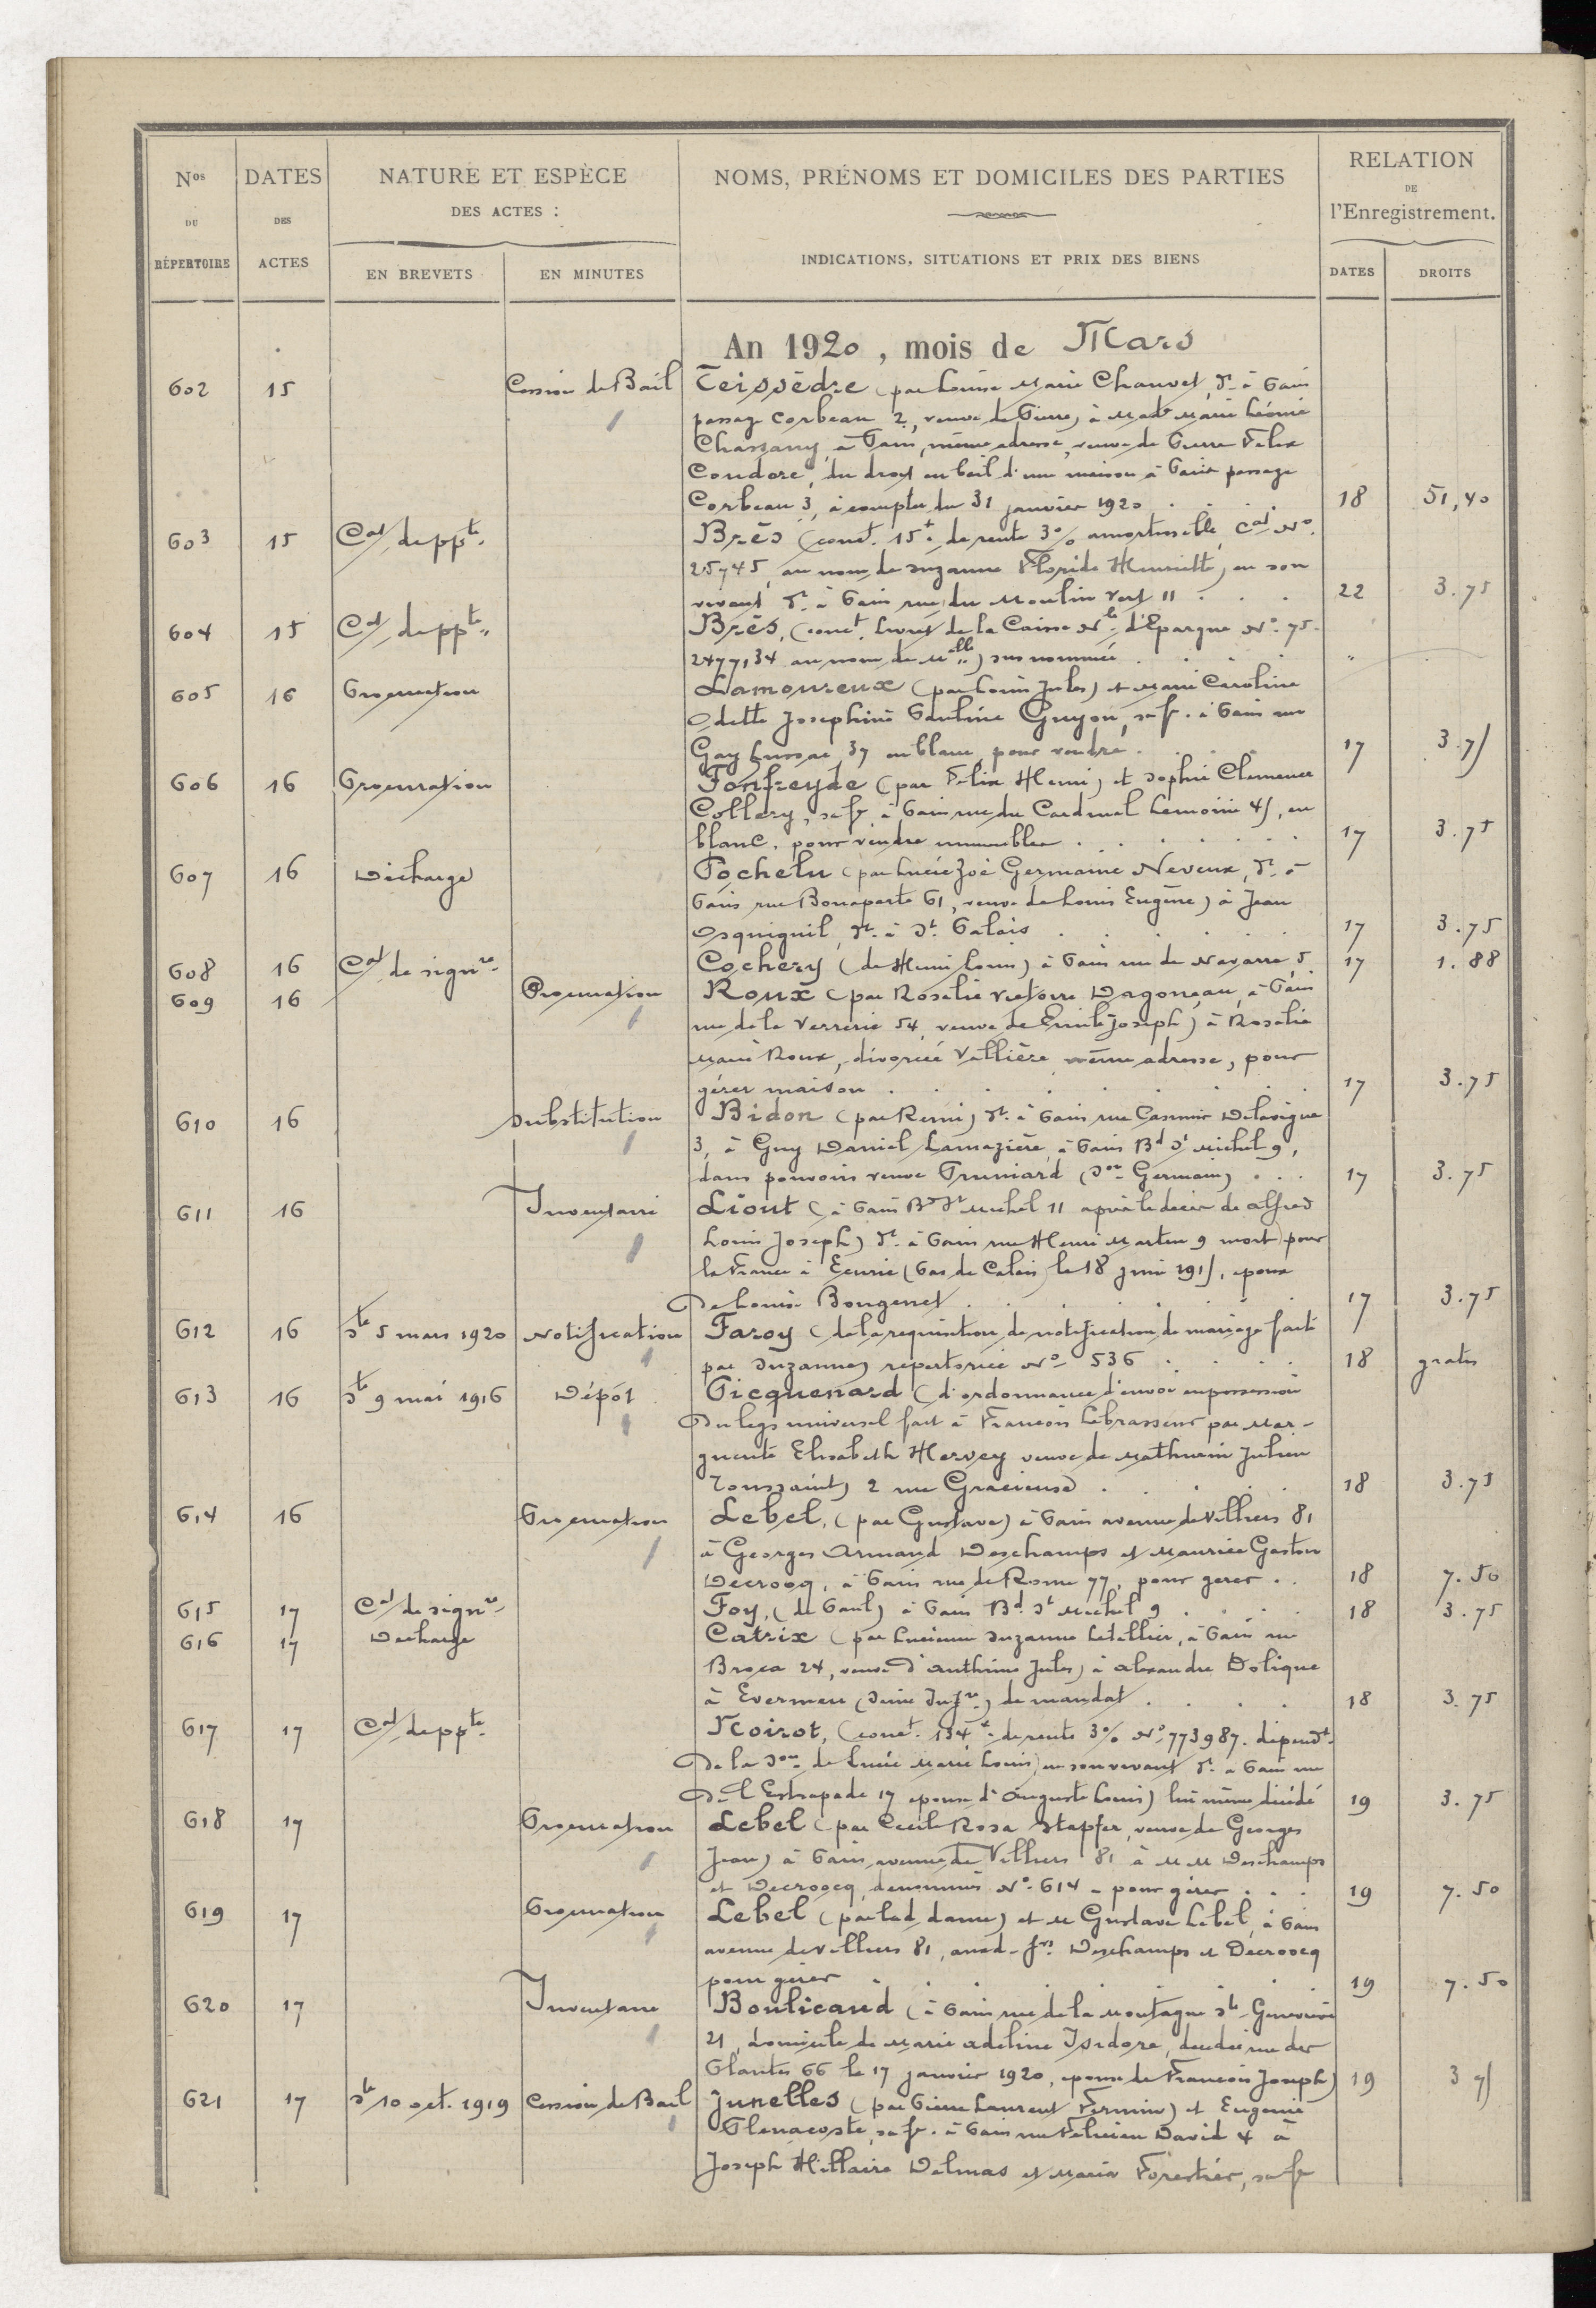 Nos DU RÉPERTOIRE
DATES DES ACTES
NATURE ET ESPÈCE
DES ACTES :
EN BREVETS
EN MINUTES
NOMS, PRÉNOMS ET DOMICILES DES PARTIES
INDICATIONS, SITUATIONS ET PRIX DES BIENS
RELATION
DE
l'Enregistrement.
DATES
DROITS
An 1920, mois de Mars
602 15 Cession de Bail Teissèdre (par Louise Marie Chauvet, dt. à Paris
passage Corbeau 2, veuve de Pierre) à Made Marie Léonie
Chassang, à Paris, même adresse, veuve de Pierre Felix
Coudore, du droit au bail d'une maison à Paris passage
Corbeau 3, à compter du 31 janvier 1920 . . . 18 51,40
603 15 Cat de ppté. Brès (conct. 15f. de rente 3% amortissible, Cat No.
25745, au nom de Suzanne Floride Henriette) en son
vivant dt. à Paris rue du Moulin Vert 11 . . . 22 3.75
604 15 Cat de ppté. Brès, (conct. livret de la Caisse Nle d'Epargne No. 75-
247734 au nom de Melle) sus nommée . . . "
605 16 Procuration Lamoureux (par Louis Jules) et Marie Caroline
Odette Josephine Pauline Guyon, sa f. à Paris rue
Gay Lussac 37 en blanc, pour vendre . . . 17 3.75
606 16 Procuration Fonfreyde (par Felix Henri) et Sophie Clemence
Collery, sa fe à Paris rue du Cardinal Lemoine 45, en
blanc, pour vendre immeubles . . . 17 3.75
607 16 Décharge Pochelu (par Lucie Zoé Germaine Neveux, dt. à
Paris rue Bonaparte 61, veuve de Louis Eugène) à Jean
Osquiguil, dt. à St. Palais . . . 17 3.75
608 16 Cat de signre. Cochery (de Henri Louis) à Paris rue de Navarre 5 17 1.88
609 16 Procuration Roux (par Rosalie Victoire Dagoneau, à Paris
rue de la Verrerie 54, veuve de Emile Joseph) à Rosalie
Marie Roux, divorcée Vallière, même adresse, pour
gérer maison . . . 17 3.75
610 16 Substitution Bidon (par Remi) dt. à Paris rue Casimir Delavigne
3, à Guy Daniel Lamazière, à Paris Bd St Michel 9,
dans pouvoirs veuve Pruniard (Son Germain) . . . 17 3.75
611 16 Inventaire Liout (à Paris Bd St Michel 11 après le décès de Alfred
Louis Joseph) dt. à Paris rue Henri Martin 9 mort pour
la France à Ecurie (Pas de Calais) le 18 juin 1915, époux
de Louise Bougenet . . . 17 3.75
612 16 Ste 5 mars 1920 Notification Faroy (de la requisition de notification de mariage faite
par Suzanne) répertoriée No. 536 . . . 18 gratis
613 16 Ste 9 mai 1916 Dépôt Picquenard (d'ordonnance d'envoi en possession
du legs universel fait à François Lebrasseur par Mar-
guerite Elisabeth Hervey veuve de Mathurin Julien
Toussaint) 2 rue Gracieuse . . . 18 3.75
614 16 Procuration Lebel, (par Gustave) à Paris avenue de Villiers 81
à Georges Armand Deschamps et Maurice Gaston
Decroocq, à Paris rue de Rome 77, pour gérer . . 18 7.50
615 17 Cat de signre. Foy, (de Paul) à Paris Bd. St Michel 9 . . . 18 3.75
616 17 Décharge Catrix (par Lucienne Suzanne Letellier, à Paris rue
Broca 24, veuve d'Anthime Jules) à Alexandre Dolique
à Evermeu (Seine Infre.) de mandat . . . 18 3.75
617 17 Cat de ppté. Noirot, (conct. 134f. de rente 3% No. 773987. dépendt.
de la Son. de Lucie Marie Louis) en son vivant dt. à Paris rue
de l'Estrapade 17 épouse d'Auguste Louis) lui même décédé 19 3.75
618 17 Procuration Lebel (par Cecile Rosa Stapfer, veuve de Georges
Jean) à Paris avenue de Villiers 81 à MM Deschamps
et Decroocq, dénommés No. 614 - pour gérer . . . 19 7.50
619 17 Procuration Lebel (par lad. dame) et M Gustave Lebel, à Paris
avenue de Villiers 81, aux d. Deschamps et Decroocq
pour gérer . . . 19 7.50
620 17 Inventaire Boulicaud (à Paris rue de la Montagne Ste Geneviève
21, domicile de Marie Adeline Isidore, décédée rue des
Plantes 66 le 17 janvier 1920, épouse de François Joseph) 19 3.75
621 17 Ste 10 oct. 1919 Cession de Bail Junelles (par Pierre Laurent Firmin) et Eugenie
Plenacoste, sa fe. à Paris rue Felicien David 4 à
Joseph Hillaire Delmas et Maria Forestier, sa fe